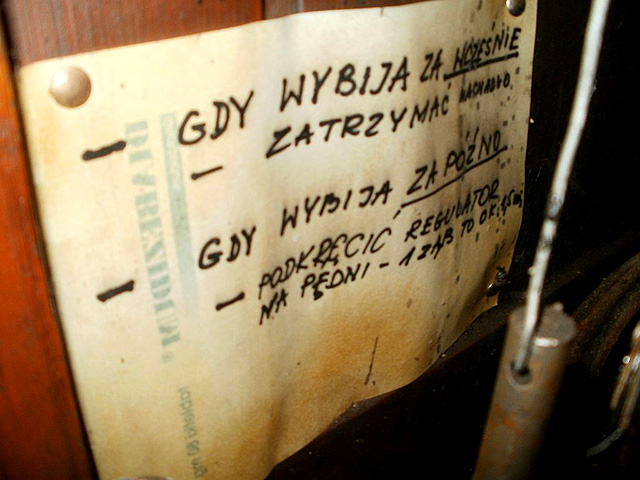 - GDY WYBIJA ZA WCZEŚNIE
- ZATRZYMAĆ WAHADŁO
- GDY WYBIJA ZA PÓŹNO
- PODKRĘCIĆ REGULATOR
NA PĘDNI - 1 ZĄB TO OK.
DIABEZIDUM®